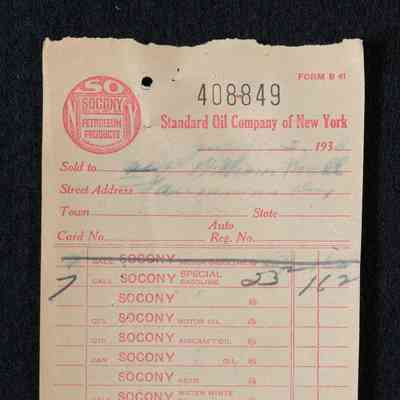 FORM B 41
SO
SOCONY
PETROLEUM
PRODUCTS
408849
Standard Oil Company of New York
193
Sold to William
Street Address
Town State
Auto
Card No. Reg. No.
GALL. SOCONY
7 GALL. SOCONY SPECIAL GASOLINE 23² 162
SOCONY @
QTS. SOCONY MOTOR OIL @
QTS. SOCONY AIRCRAFT OIL @
CAN SOCONY OIL @
SOCONY @
SOCONY